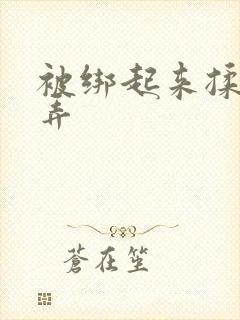 被绑起来揉
弄
蒼在笙